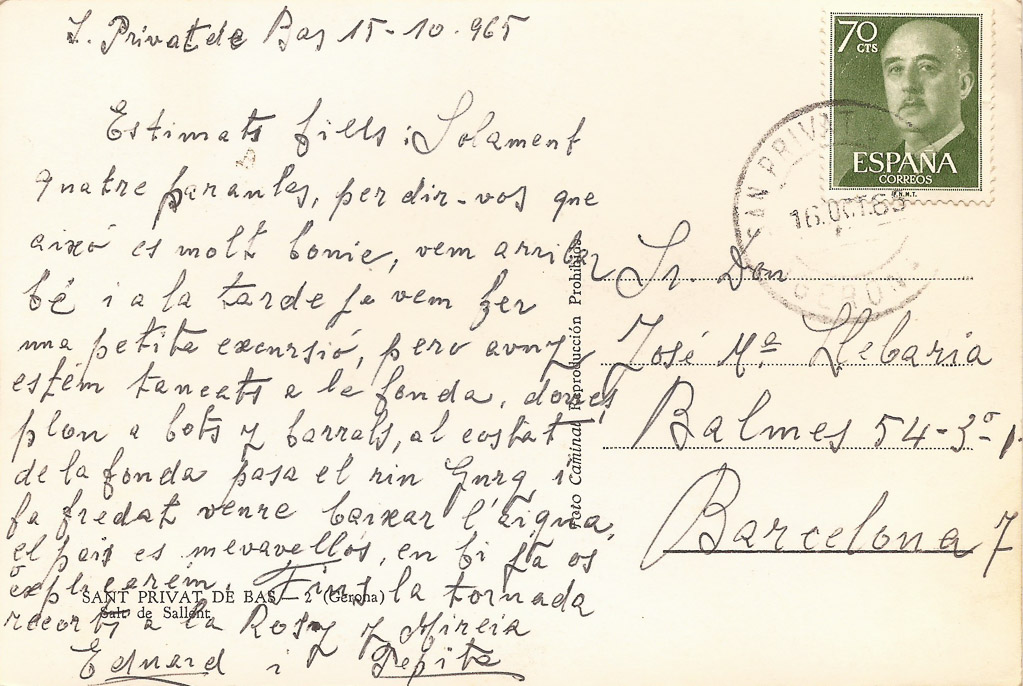 S. Privat de Bas 15-10-965
Estimats fills: Solament
quatre paraules, per dir-vos que
aixó es molt bonic, vem arribar
bé i a la tarde ja vem fer
una petita excursió, pero avuy
estém tancats a la fonda, donçs
plou a bots y barrals, al costat
de la fonda pasa el riu Gurg i
fa fredat veure baixar l'aigua,
el pais es meravellós, en fi ja os
explicarém. Fins la tornada
recorts a la Rosy y Mireia
Eduard i Pepita
SANT PRIVAT DE BAS — 2 (Gerona)
Salt de Sallent
Foto Caminal Reproducción Prohibida
70 CTS
ESPAÑA
CORREOS
F.N.M.T.
SAN PRIVAT DE
16.OCT.65
GERONA
Sr. Don
José Mª Llebaria
Balmes 54-3º-1
Barcelona 7